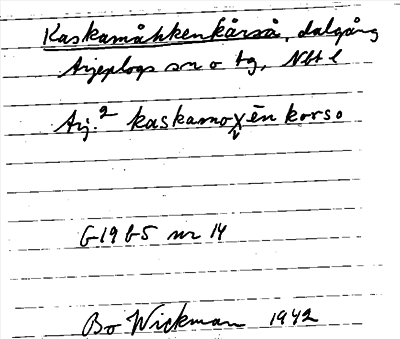 Kaskamåhkenkårså, dalgång
Arjeplogs sn o tg, Nbt l
Arj.² kaskamoχ̬ēn korso
G 19 b 5 nr 14
Bo Wickman 1942